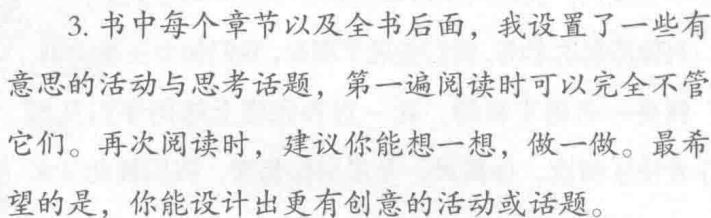 3. 书中每个章节以及全书后面，我设置了一些有
意思的活动与思考话题，第一遍阅读时可以完全不管
它们。再次阅读时，建议你能想一想，做一做。最希
望的是，你能设计出更有创意的活动或话题。